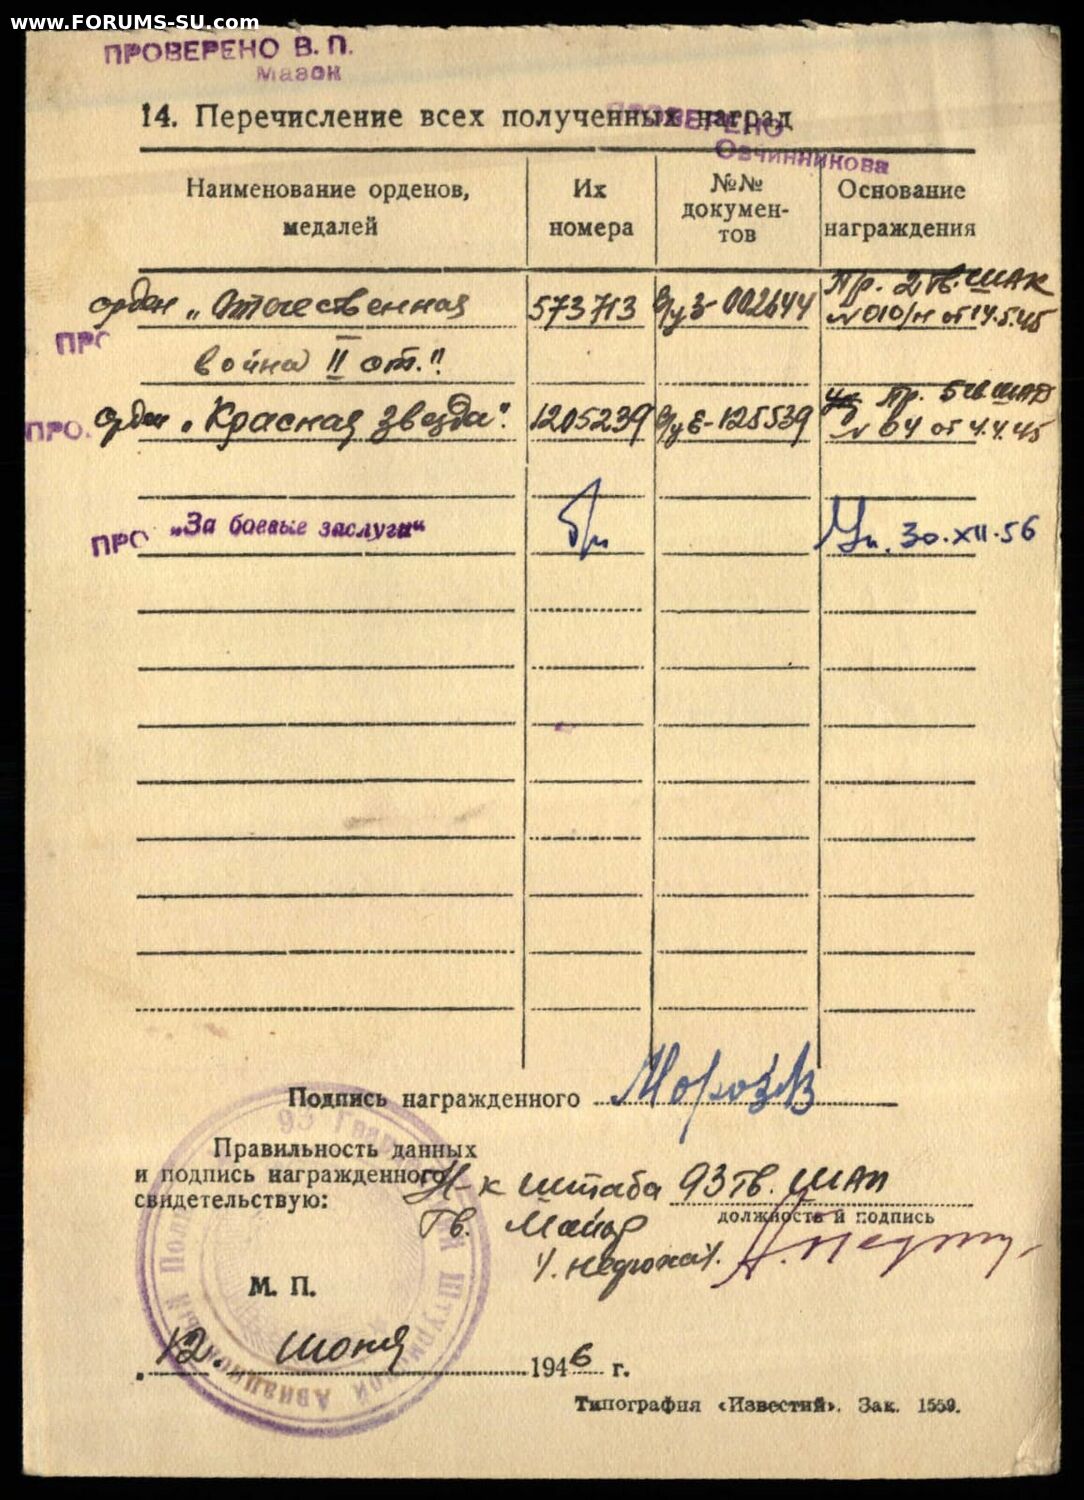 www.FORUMS-SU.com
ПРОВЕРЕНО В. П.
Мазок
14. Перечисление всех полученных наград
ПРОВЕРЕНО
Овчинникова
Наименование орденов, медалей
Их номера
№№ докумен-тов
Основание награждения
орден „Отечественная 573713 002644 Пр. 2 гв. ШАК
№ 010/н от 14.5.45
ПРО
война II ст."
ПРО. орден „Красная звезда". 1205239 125539 Пр. 5 гв ШАД
№ 04 от 4.4.45
ПРО „За боевые заслуги“ Ук. 30.XII.56
Подпись награжденного Морозов
Правильность данных
и подпись награжденного
свидетельствую:
Н-к штаба 93 гв. ШАП
должность и подпись
Гв. Майор
М. П.
12. июня 1946 г.
93 Гвардейский Штурмовой Авиационный Полк
Типография «Известий». Зак. 1559.